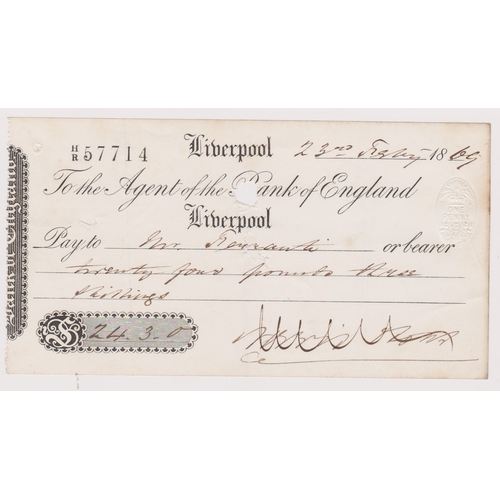 H/R 57714 Liverpool 23rd 1869
To the Agent of the Bank of England
Liverpool
Pay to Mr. or bearer
twenty four pounds three
shillings
£ 24.3.0